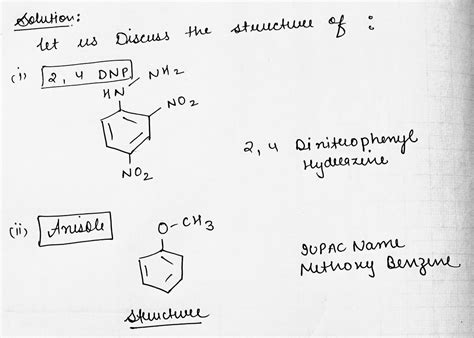 Solution:
let us Discuss the structure of :
(i) 2, 4 DNP
HN NH2
NO2
NO2
2, 4 Dinitrophenyl
Hydrazine
(ii) Anisole
O-CH3
Structure
IUPAC Name
Methoxy Benzene